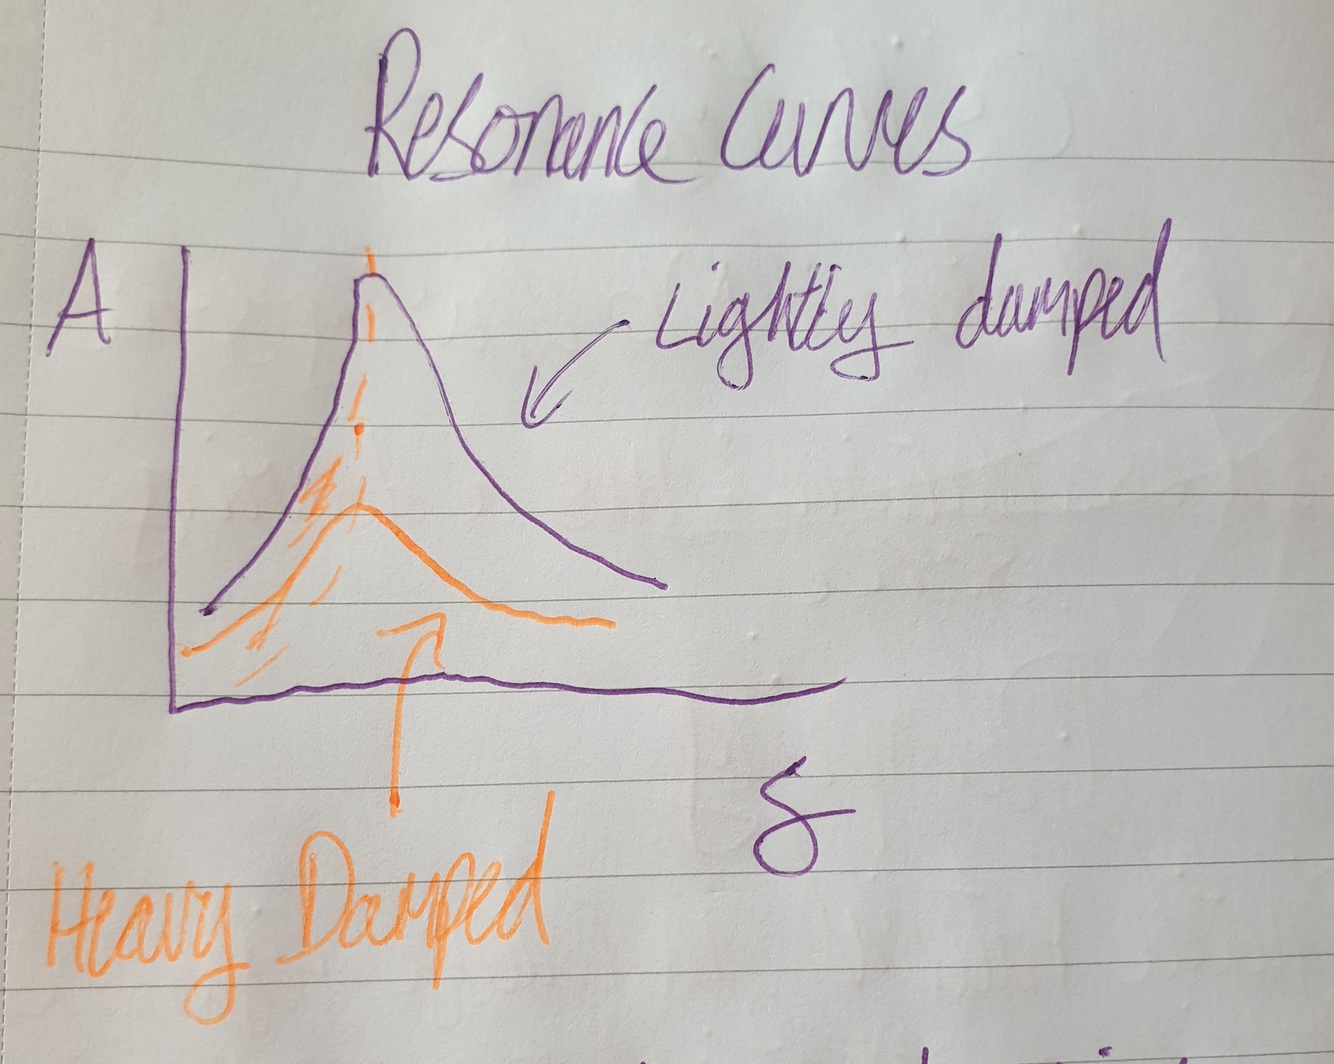 Resonance Curves
A
Lightly damped
f
Heavy Damped